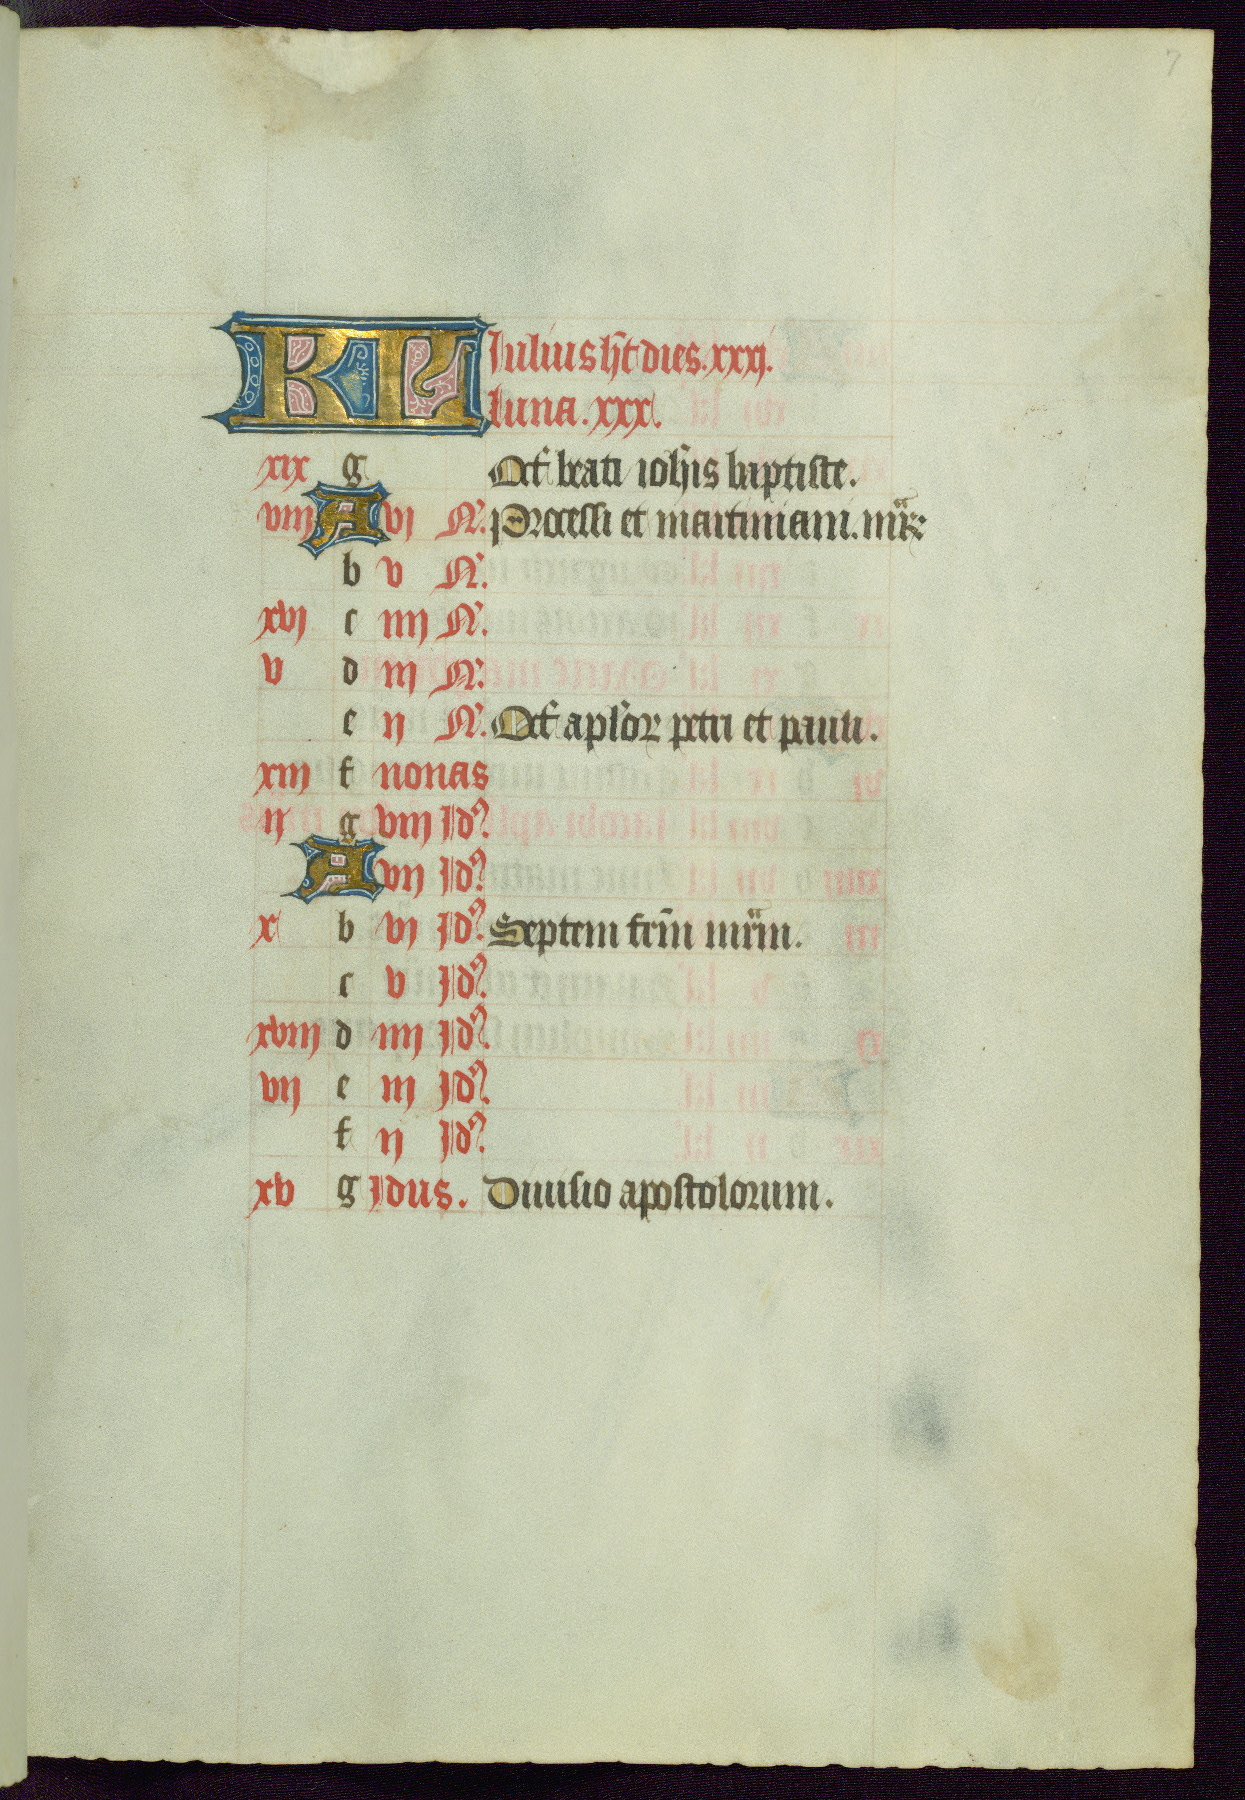 7
KL Iulius ht dies. xxxj.
luna. xxx.
xix g Oct beati ioh̄is baptiste.
viij A vj N. Processi et martiniani. mr̄.
b v N.
xvj c iiij N.
v d iij N.
e ij N. Oct apl'or petri et pauli.
xiij f nonas
ij g viij Id9.
A vij Id9.
x b vj Id9. Septem frm̄ mr̄m.
c v Id9.
xviij d iiij Id9.
vij e iij Id9.
f ij Id9.
xv g Idus. Diuisio apostolorum.